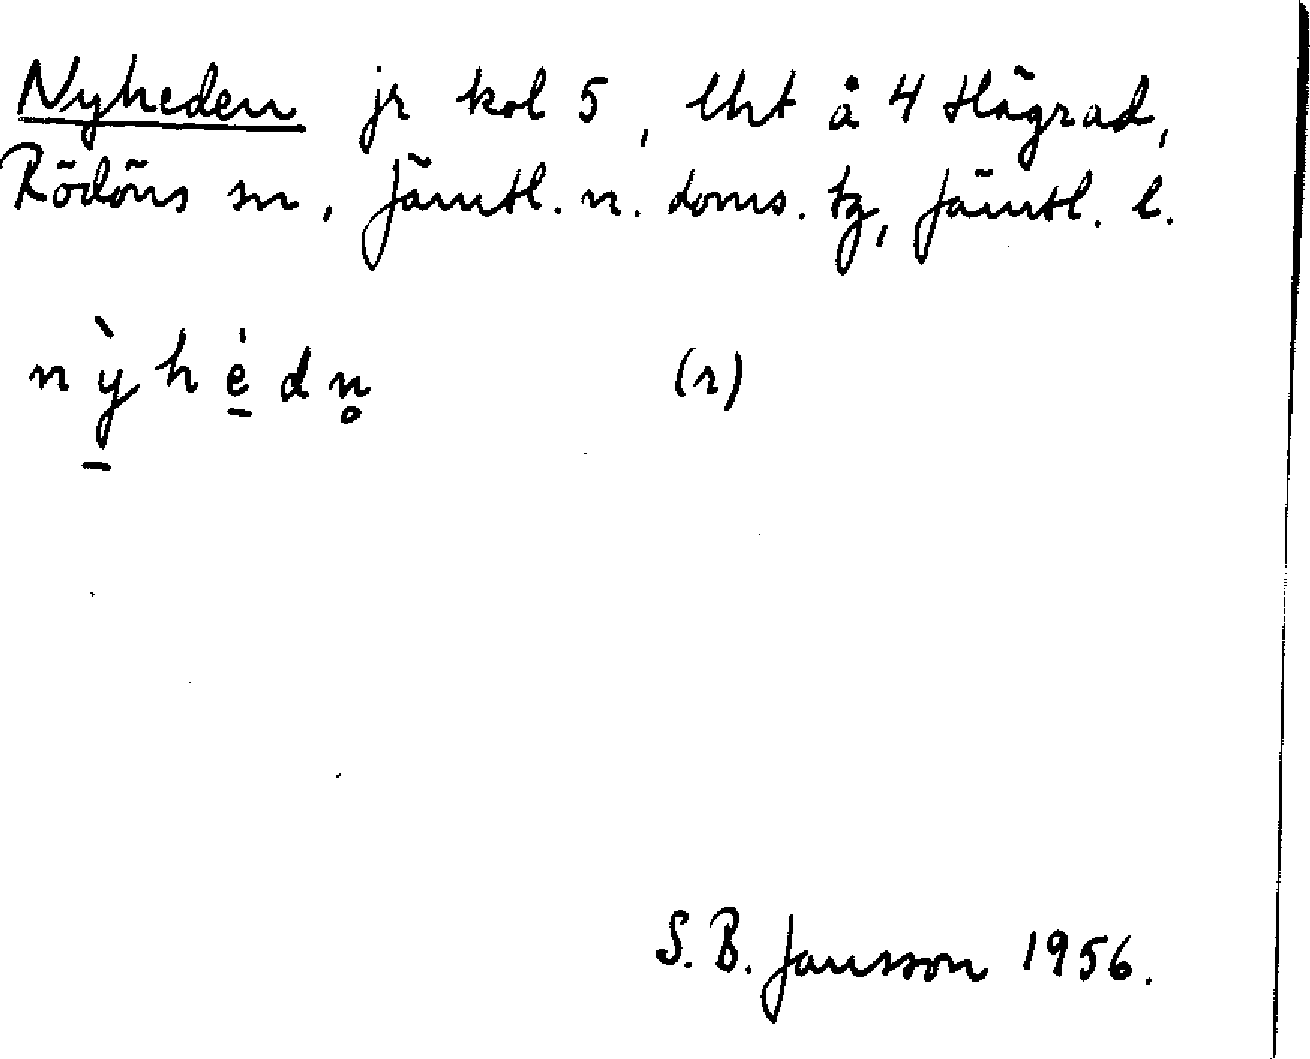 Nyheden jr kol 5, lht å 4 Hägrad,
Rödöns sn, Jämtl. n. doms. tg, Jämtl. l.
ǹy̲hė̲dn̥ (r)
S. B. Jansson 1956.